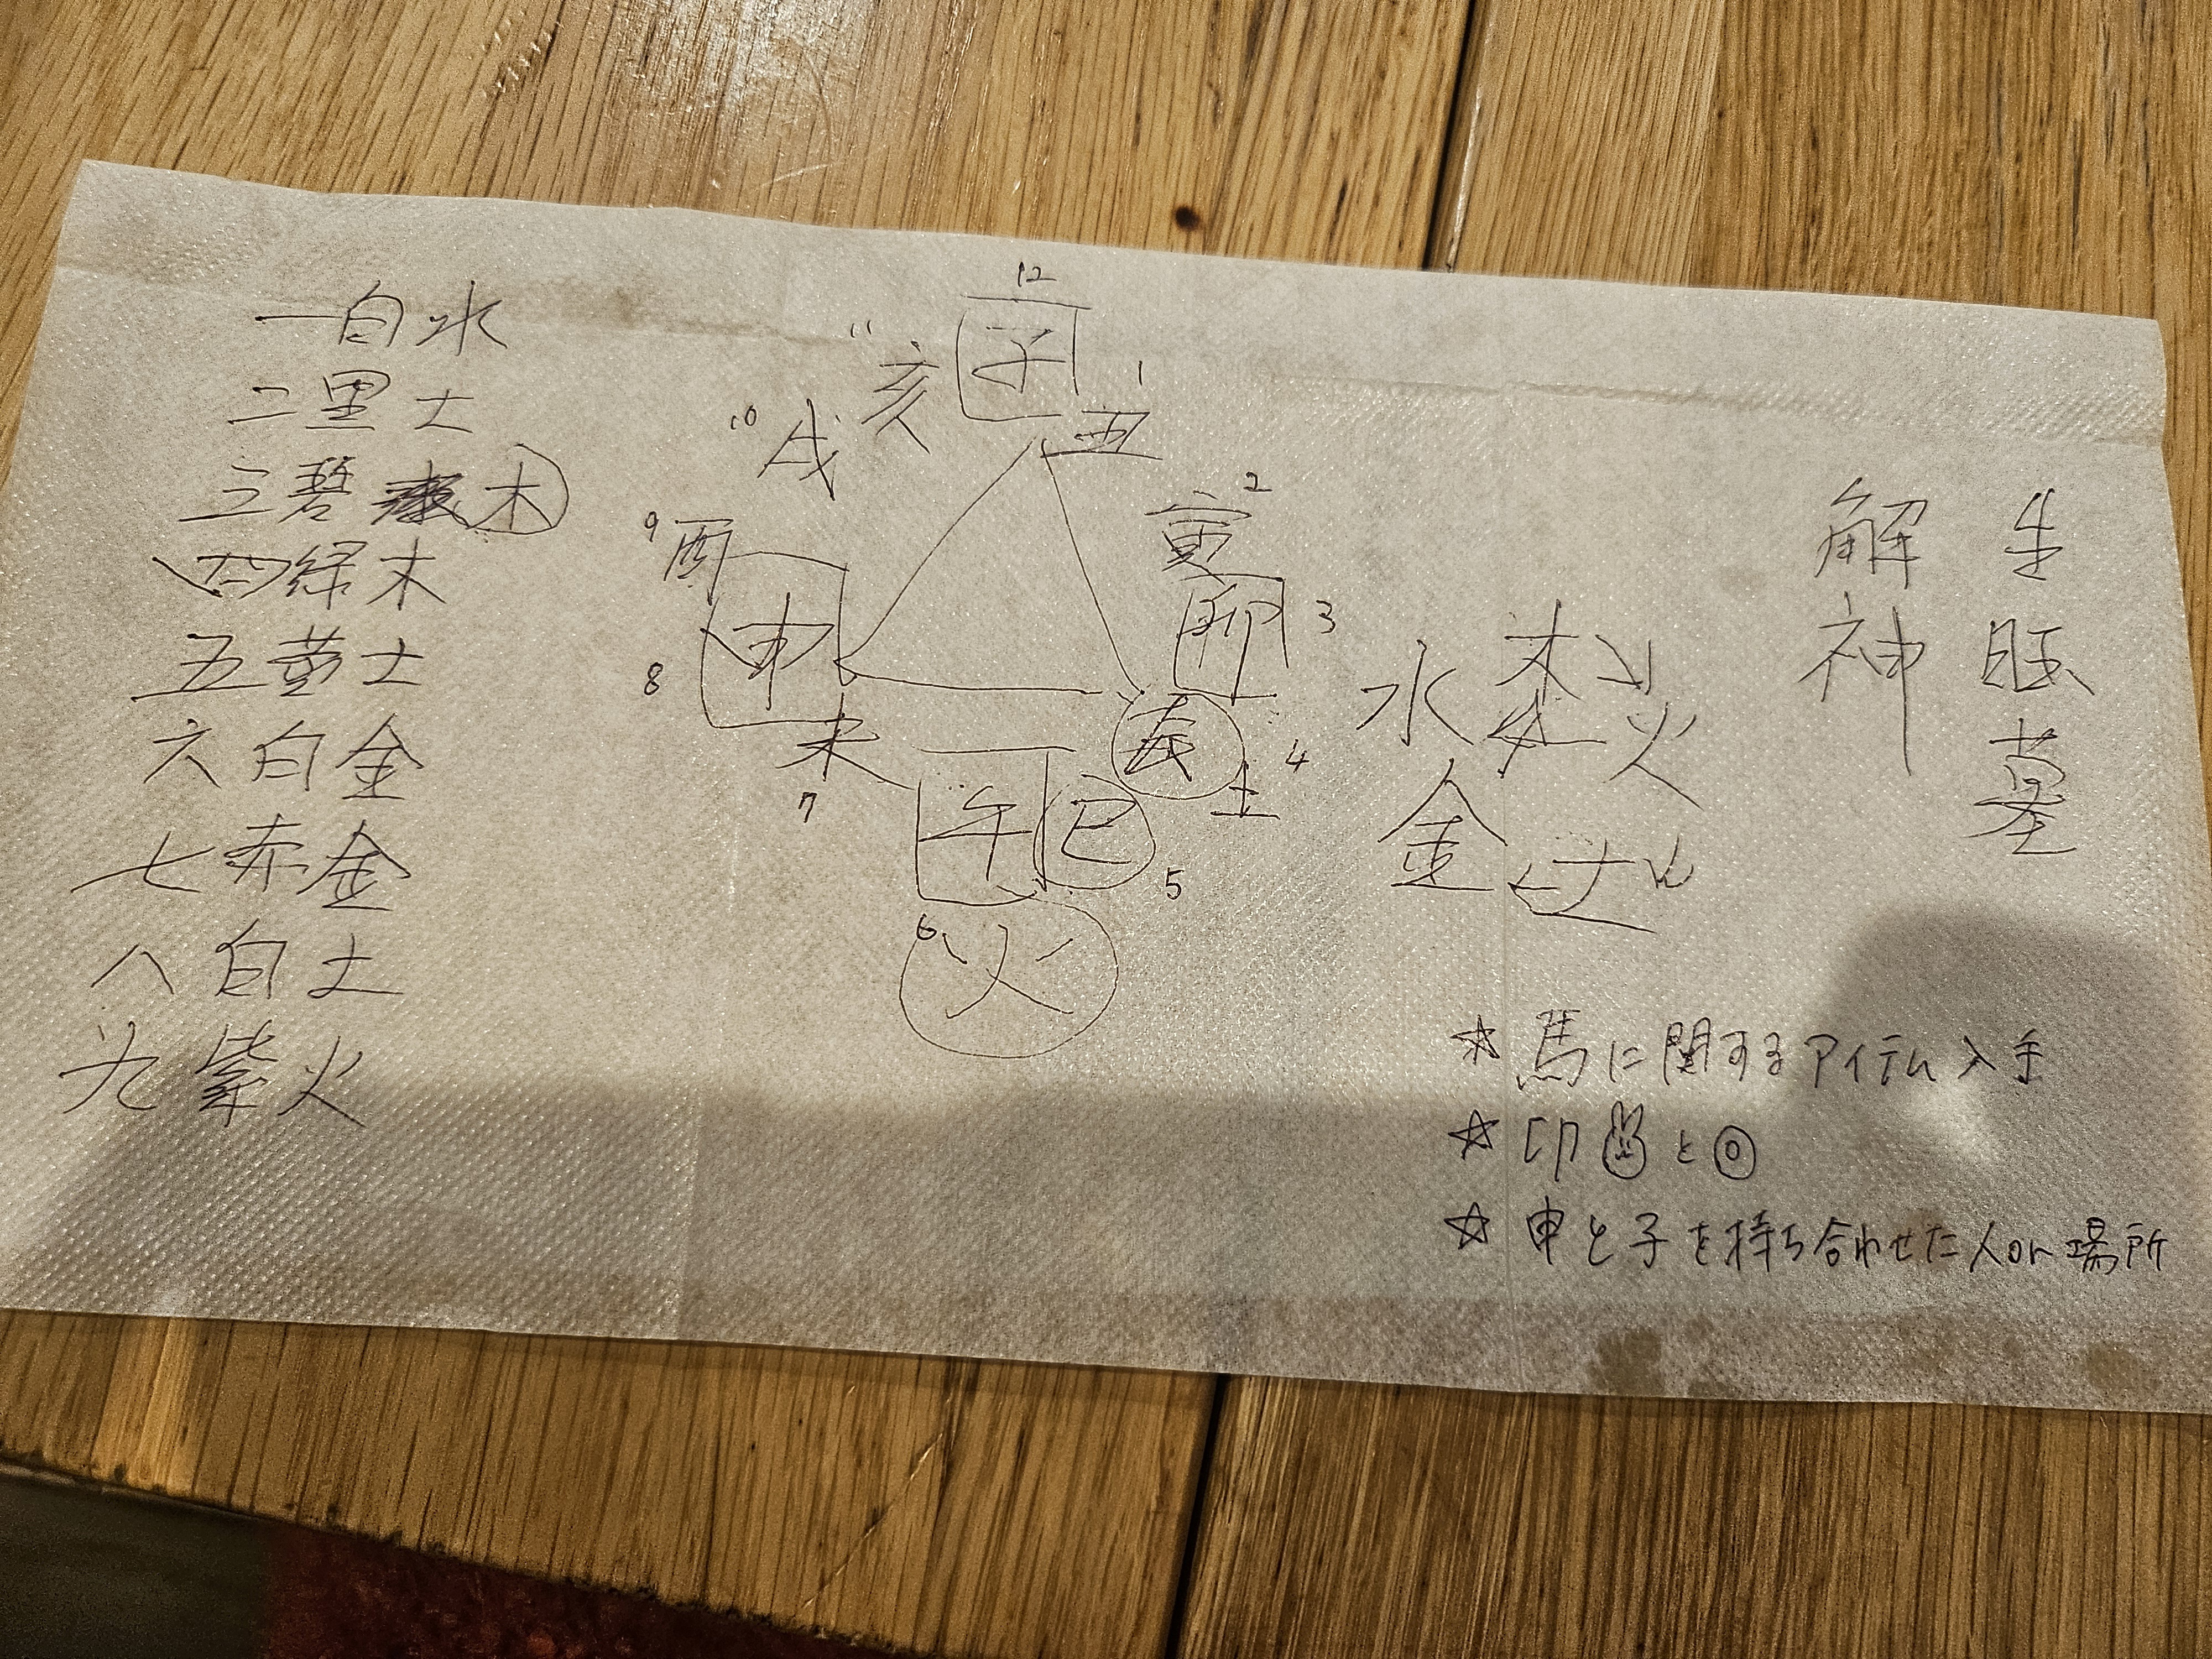 一白水
二黒土
三碧 木
四緑木
五黄土
六白金
七赤金
八白土
九紫火
12
子
11
亥
1
丑
10
戌
2
寅
9
酉
卯
3
8
申
辰
4
土
未
7
午
巳
5
6
火
水 木 火
金 土
解神
生旺墓
☆ 馬に関するアイテム入手
☆ 印 と
☆ 申と子を持ち合わせた人or場所